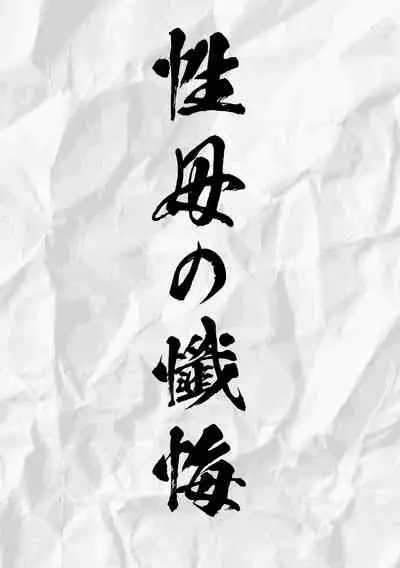 性母の懺悔